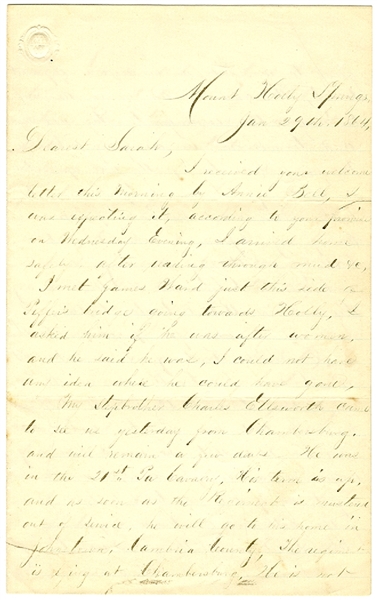 Mount Holly Springs,
Jan 29th. 1864,
Dearest Sarah,
I received your welcome
letter this Morning by Annie Bell, I
was expecting it, according to your promise
on Wednesday Evening, I arrived home
safely after wading through mud &c,
I met James Ward just this side of
bridge going towards Holly, I
asked him if he was after women,
and he said he was, I could not have
an idea where he could have gone,
My Stepbrother Charles Ellsworth came
to see us yesterday from Chambersburg,
and will remain a few days. He was
in the 21st Pa Cavalry, His term is up,
and as soon as the Regiment is mustered
out of service, he will go to his home in
Johnstown, Cambria County, The regiment
is lying at Chambersburg. He is not